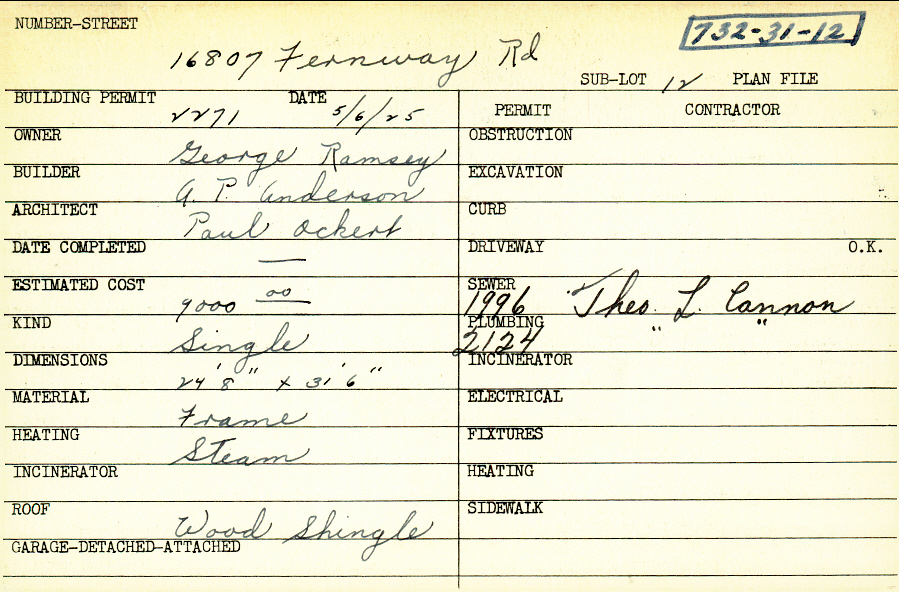 NUMBER-STREET
732-31-12
16807 Fernway Rd
SUB-LOT 12 PLAN FILE
BUILDING PERMIT 2271 DATE 5/6/25
PERMIT CONTRACTOR
OWNER George Ramsey
OBSTRUCTION
BUILDER A. P. Anderson
EXCAVATION
ARCHITECT Paul Ockert
CURB
DATE COMPLETED —
DRIVEWAY O.K.
ESTIMATED COST 9000 00
SEWER 1996 Theo. L. Cannon
KIND Single
PLUMBING 2124 " "
DIMENSIONS 24' 8" x 31' 6"
INCINERATOR
MATERIAL Frame
ELECTRICAL
HEATING Steam
FIXTURES
INCINERATOR
HEATING
ROOF Wood Shingle
SIDEWALK
GARAGE-DETACHED-ATTACHED